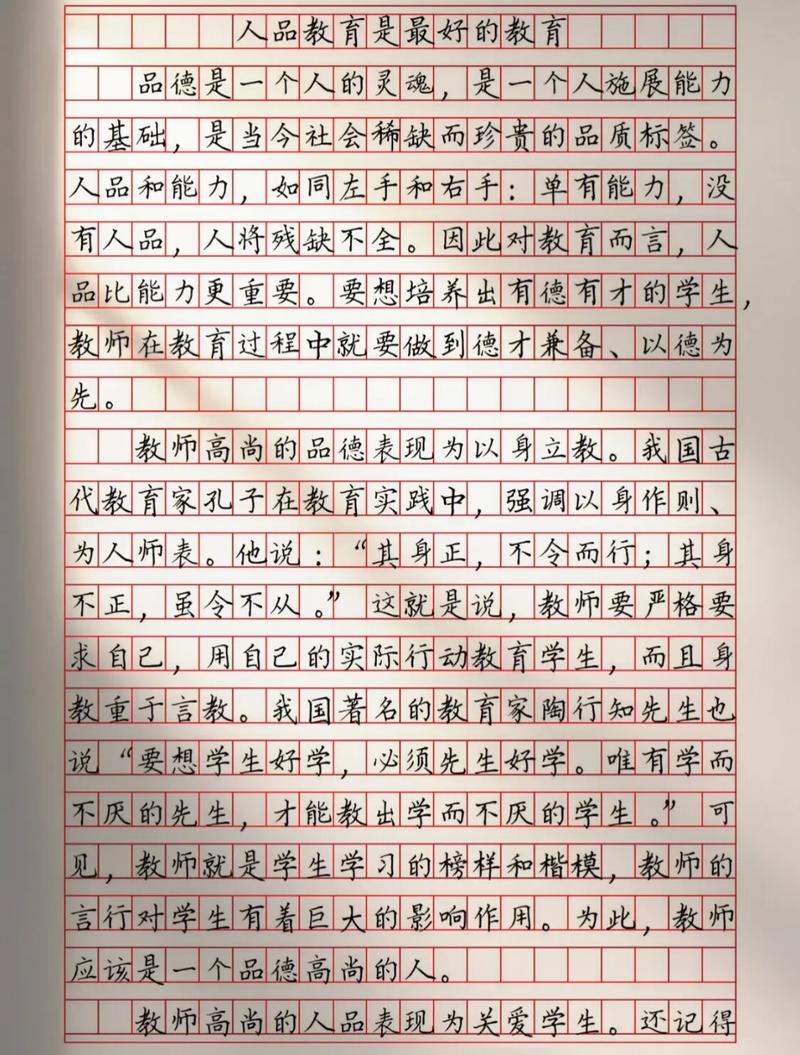 人品教育是最好的教育
品德是一个人的灵魂，是一个人施展能力
的基础，是当今社会稀缺而珍贵的品质标签。
人品和能力，如同左手和右手：单有能力，没
有人品，人将残缺不全。因此对教育而言，人
品比能力更重要。要想培养出有德有才的学生，
教师在教育过程中就要做到德才兼备、以德为
先。
教师高尚的品德表现为以身立教。我国古
代教育家孔子在教育实践中，强调以身作则、
为人师表。他说：“其身正，不令而行；其身
不正，虽令不从。”这就是说，教师要严格要
求自己，用自己的实际行动教育学生，而且身
教重于言教。我国著名的教育家陶行知先生也
说“要想学生好学，必须先生好学。唯有学而
不厌的先生，才能教出学而不厌的学生。”可
见，教师就是学生学习的榜样和楷模，教师的
言行对学生有着巨大的影响作用。为此，教师
应该是一个品德高尚的人。
教师高尚的人品表现为关爱学生。还记得